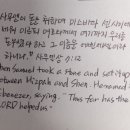 사무엘이 돌을 취하여 미스바와 센 사이에
세워 이르되 여호와께서 여기까지 우리를
도우셨다 하고 그 이름을 에벤에셀이라
하니라." 사무엘상 7:12
Then Samuel took a stone and set it up
between Mizpah and Shen. He named
Ebenezer, saying, "Thus far has the
LORD helped us."